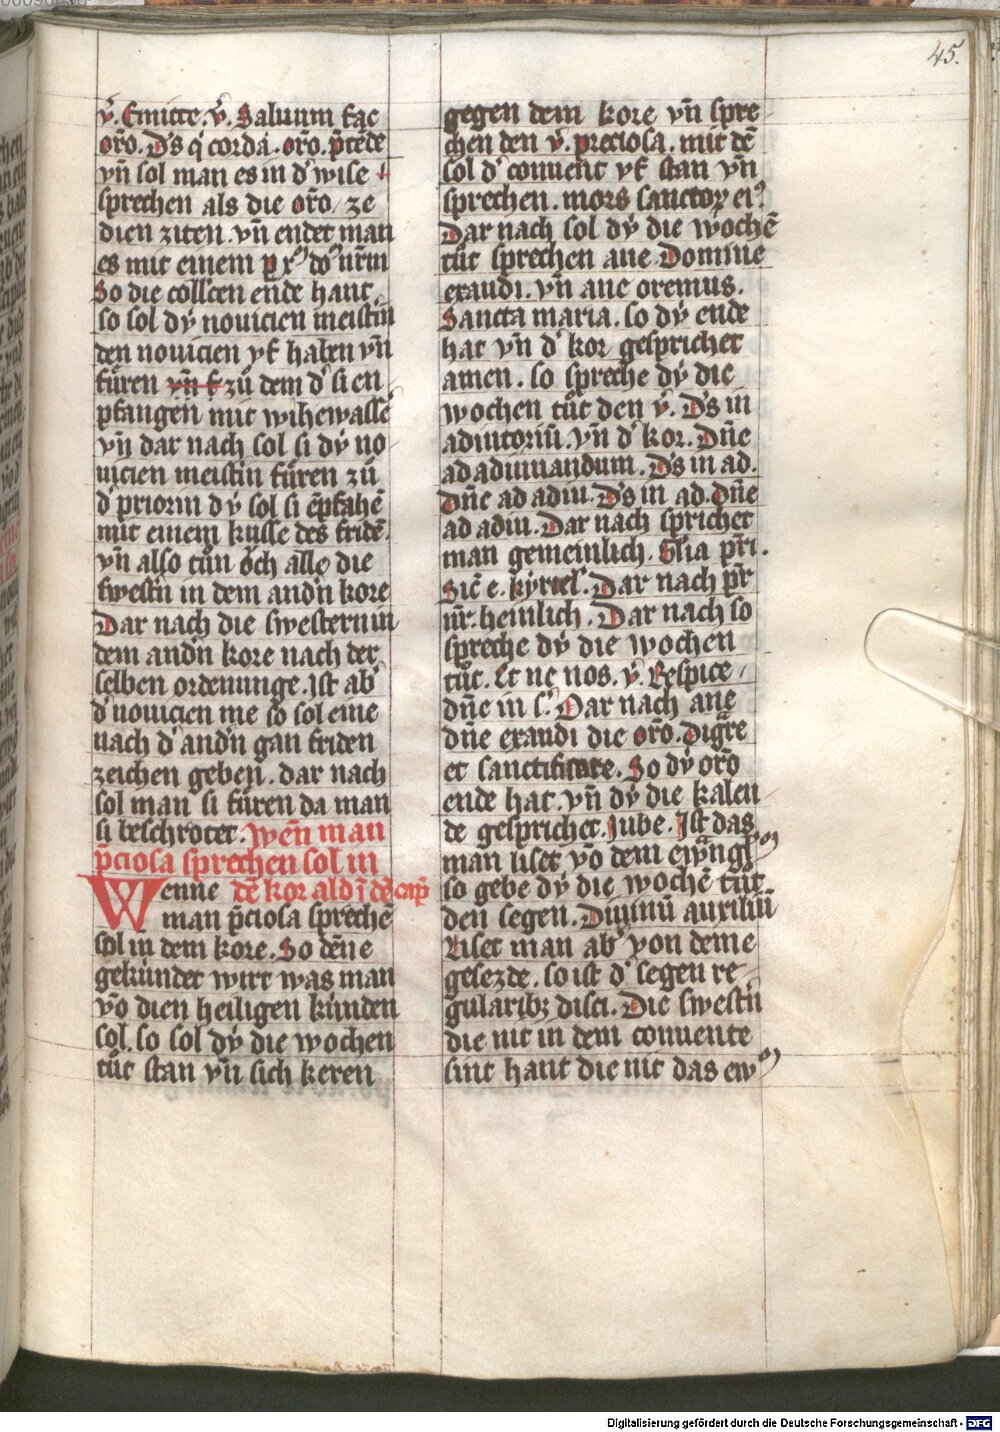 45.
v̄. Emitte. v̄. Saluum fac
orō. Ds q corda. orō. p̄tēde
vn̄ sol man es in d' wise
sprechen als die orō. ze
dien ziten. vn̄ endet man
es mit einem p xm̄ do' nr̄m
So die collēten ende hant
so sol dÿ nouicien meistin
den nouicien vf haben vn̄
fůren vn̄ f zů dem d' si en
pfangen mit wihewassē
vn̄ dar nach sol si dÿ no
uicien meistin fůren zů
d' priorin dÿ sol si ēpfahē
mit einem kusse des fridē.
vn̄ also tůn och alle die
swestn̄ in dem andn̄ kore
Dar nach die swestern in
dem andn̄ kore nach der
selben ordenunge. Ist ab'
d' nouicien me so sol eine
nach d' andn̄ gan friden
zeichen geben. dar nach
sol man si fůren da man
si beschrotet. Wen̄ man
p̄ciosa sprechen sol in
Wenne dē kor ald ī dē cap̄
man p̄ciosa sprechē
sol in dem kore. So dēne
gekündet wirt was man
vō dien heiligen künden
sol. so sol dÿ die wochen
tůt stan vn̄ sich keren
gegen dem kore vn̄ spre
chen den v̄. preciosa. mit dē
sol d' conuent vf stan vn̄
sprechen. mors sanctoꝝ ei'.
Dar nach sol dÿ die wochē
tůt sprechen ane Domine
exaudi. vn̄ ane oremus.
Sancta maria. so dÿ ende
hat vn̄ d' kor gesprichet
amen. so spreche dÿ die
wochen tůt den v̄. Ds in
adiutoriū. vn̄ d' kor. Dn̄e
ad adiuuandum. Ds in ad.
Dn̄e ad adiu. Ds in ad. Dn̄e
ad adiu. Dar nach sprichet
man gemeinlich. Glīa pr̄i.
Sic̄ e. kyriel'. Dar nach pr̄
nr̄. heinlich. Dar nach so
spreche dÿ die wochen
tůt. Et ne nos. v̄. Respice
dn̄e in s'. Dar nach ane
dn̄e exaudi die orō. Digr̄e
et sanctificare. So dÿ orō
ende hat. vn̄ dÿ die kalen
de gesprichet. Jube. Ist das
man liset vō dem ewangl'
so gebe dÿ die wochē tůt
den segen. Diuinū auxiliū
Liset man ab' von deme
gesezde. so ist d' segen re
gularibꝫ disci. Die swestn̄
die nit in dem conuente
sint hant die nit das ew
Digitalisierung gefördert durch die Deutsche Forschungsgemeinschaft - DFG